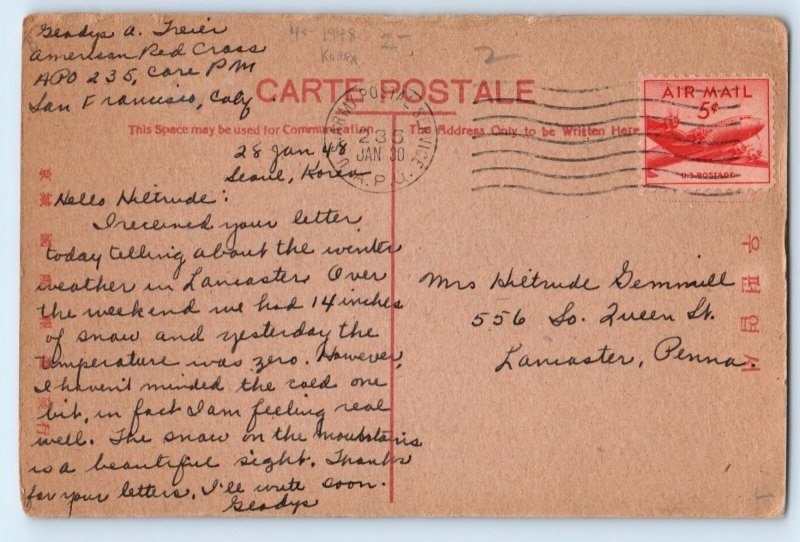 Gladys A. Freier
American Red Cross
APO 235, Care PM
San Francisco, Calif
40- 1948
KOREA
2
CARTE POSTALE
This Space may be used for Communication. The Address Only to be Written Here
U.S. ARMY POSTAL SERVICE
235
JAN 30
A.P.O.
AIR MAIL
5¢
U.S. POSTAGE
28 Jan 48
Seoul, Korea
Hello Hiltrude:
I received your letter
today telling about the winter
weather in Lancaster. Over
the weekend we had 14 inches
of snow and yesterday the
temperature was zero. However,
I haven't minded the cold one
bit, in fact I am feeling real
well. The snow on the mountains
is a beautiful sight. Thanks
for your letters. I'll write soon.
Gladys
Mrs Hiltrude Gemmill
556 So. Queen St.
Lancaster, Penna.
우편엽서